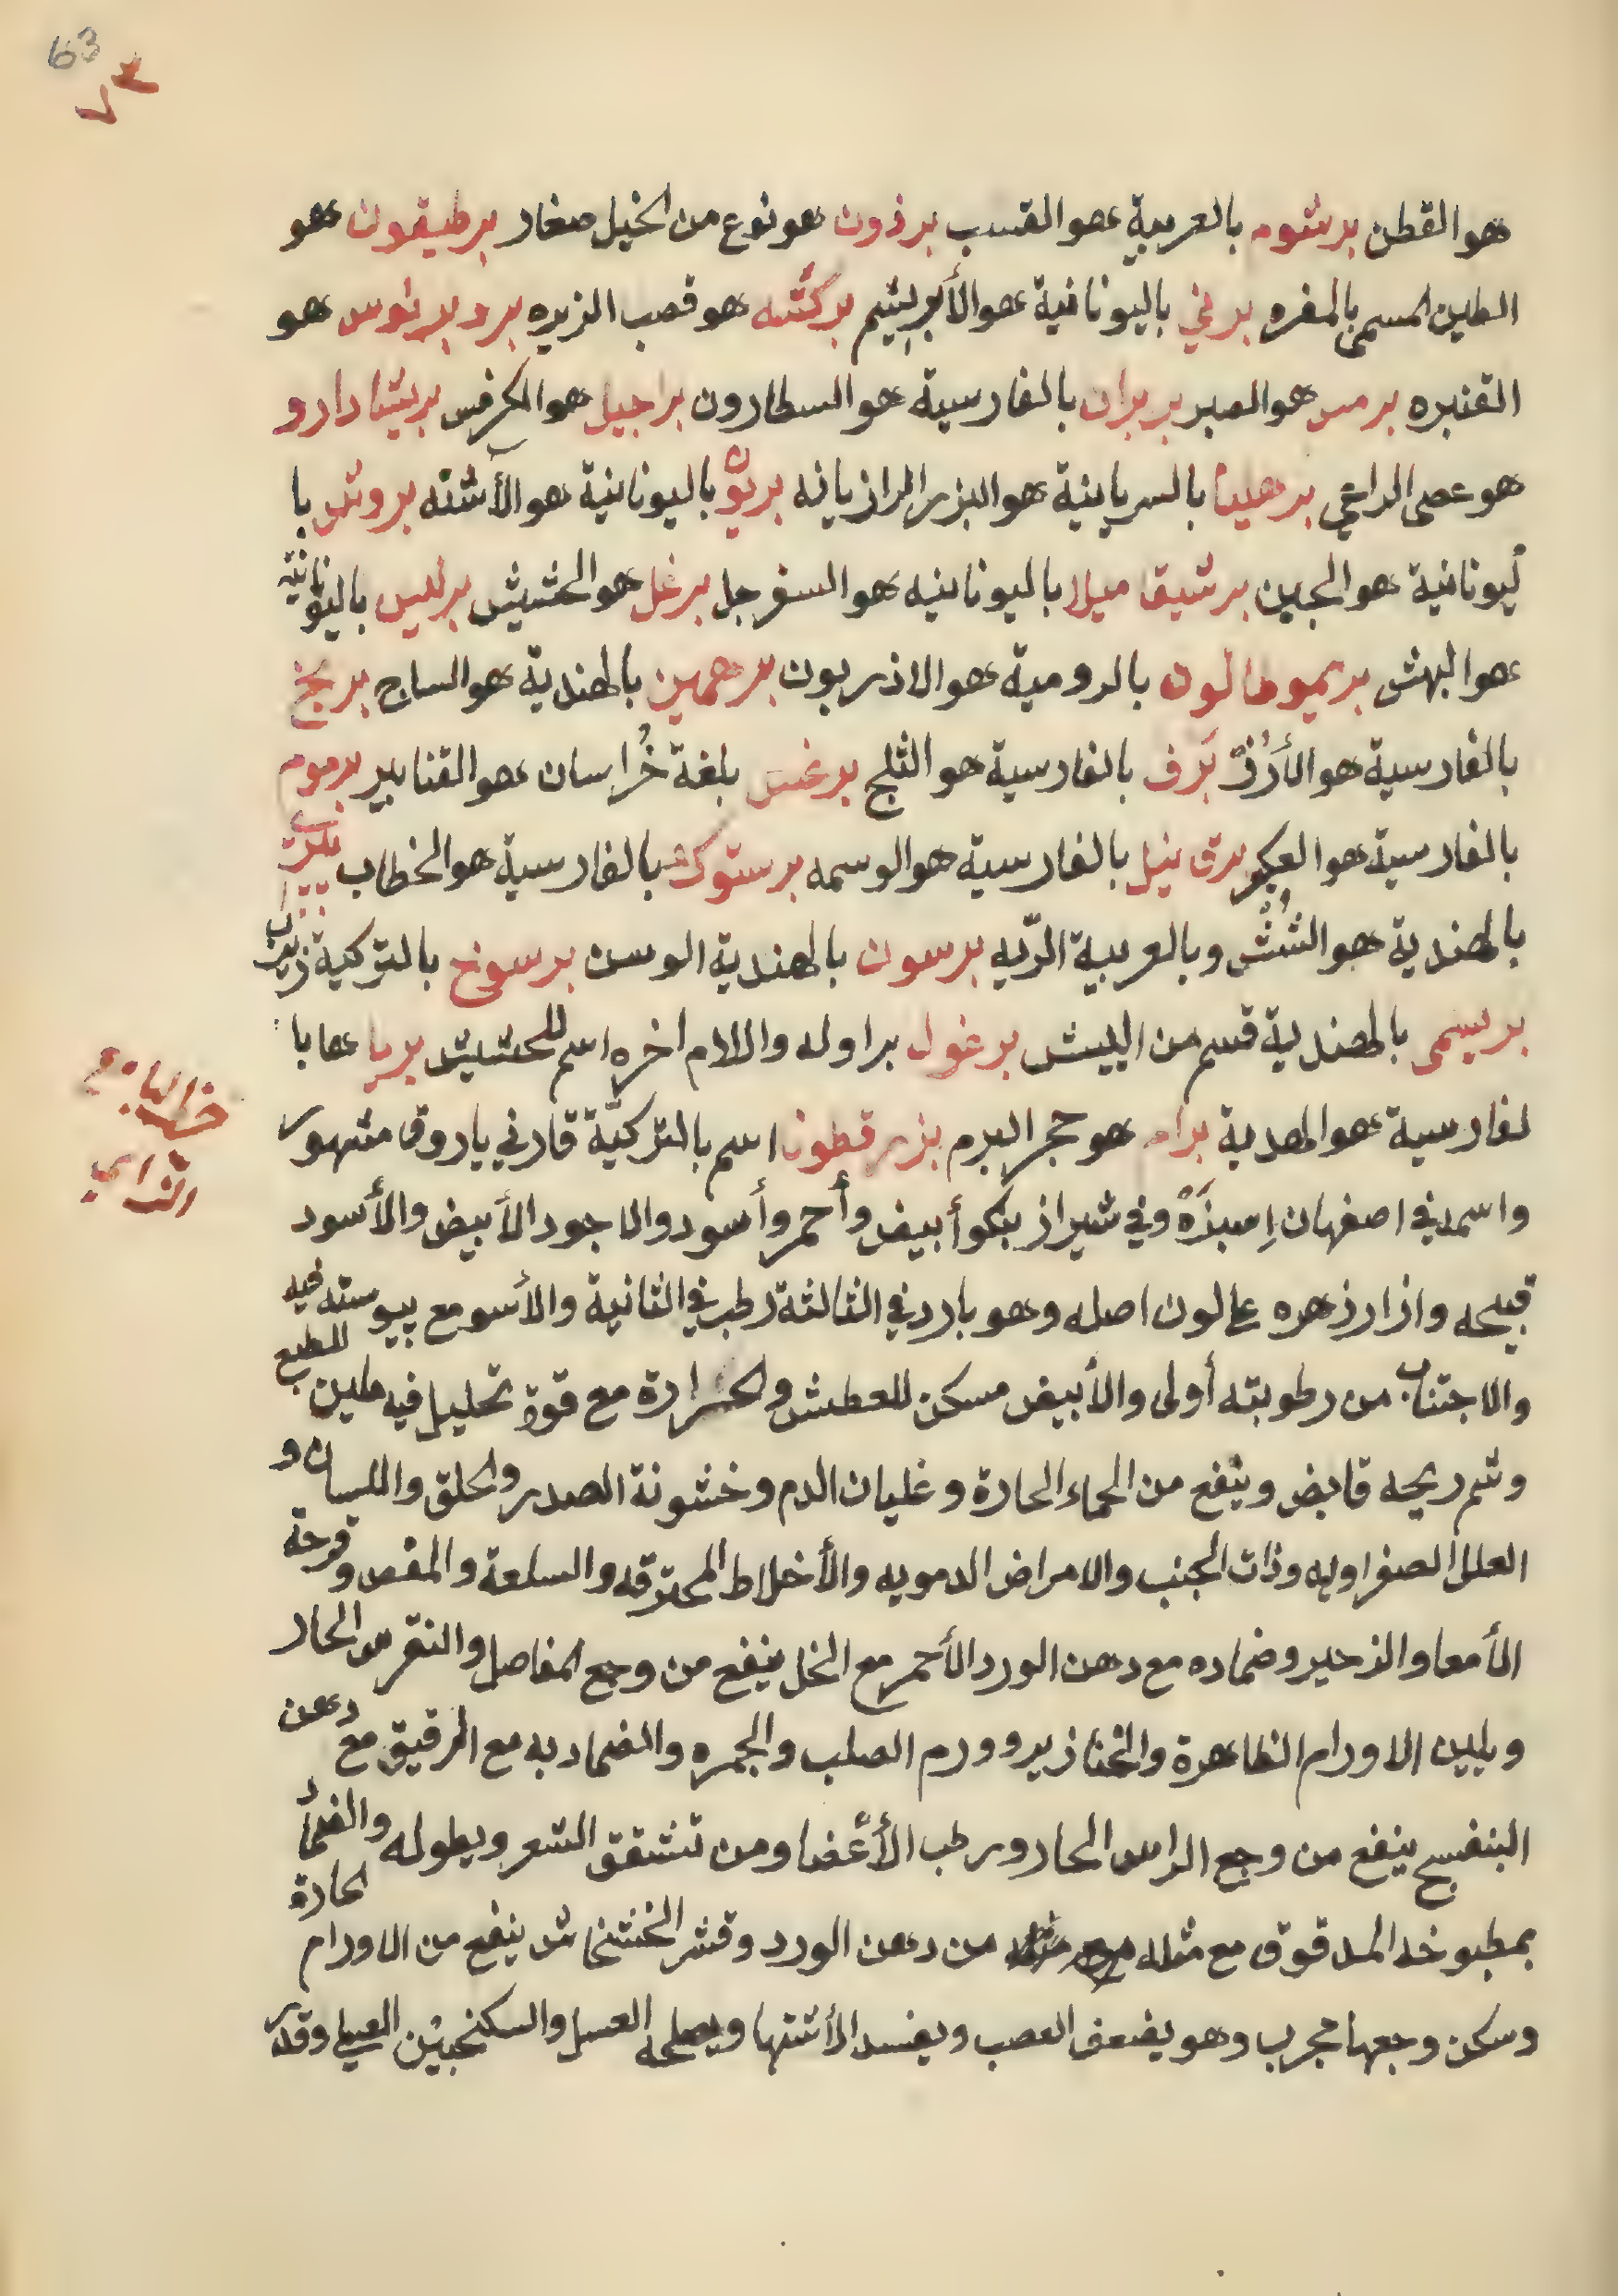 63
٧٣
هو القطن برشوم بالعربية هو القسب برذون هو نوع من الخيل صغار برطيقون هو
الطين المسمى بالمغره برني باليونانية هو الأبريشم بركشه هو قصب الزيره برد برنوس هو
القنبره برمس هو الصبر بربران بالفارسية هو السطارون براجيل هو الكرفس برشيا دارو
هو عصى الراعي برهليا بالسريانية هو البزر الرازيانه بريون باليونانية هو الأشنه بروتس با
ليونانية هو الجبن برشيقا ميلا باليونانيه هو السفرجل برغل هو الحشيش برلس باليونانية
هو البهش بريموطالون بالرومية هو الاذربون برهمين بالهندية هو الساج برنج
بالفارسية هو الأرز برف بالفارسية هو الثلج برغس بلغة خراسان هو القنابير برموم
بالفارسية هو العكبر برق نيل بالفارسية هو الوسمه برستوك بالفارسية هو الخطاب
بالهندية هو الشش وبالعربية الريه برسون بالهندية الوسن برسونج بالتركية
بريسمى بالهندية قسم من البيش برغول براوله واللام اخره اسم للحشيش بربا عابا
لفارسية هو الهدبة برام هو حجر البرم بزر قطونا اسم بالتركية قارني ياروق مشهور
خذ الباء مع
الزاي
واسمه في اصفهان اسبزه وفي شيراز بنكو أبيض وأحمر وأسود والاجود الأبيض والأسود
قبيحه وازار زهره على لون اصله وهو بارد في الثالثة رطب في الثانية والأسو مع يبوسته فيه
والاجتناب من رطوبته أولى والأبيض مسكن للعطش والحرارة مع قوة تحليل فيه ملين للطبع
وشم ريحه قابض وينفع من الحماء الحادة وغليان الدم وخشونة الصدر والحلق واللسان و
العلل الصفراويه وذات الجنب والامراض الدمويه والأخلاط المحترقه والسلعة والمغص وقرحة
الأمعا والزحير وضماده مع دهن الورد الأحمر مع الخل ينفع من وجع المفاصل والنقرس الحار
ويلين الاورام الظاهرة والخنازير وورم الصلب والجمره والضماد به مع الرقيق مع دهن
البنفسج ينفع من وجع الراس الحار ورطب الأعضا ومن تشقق الشعر ويطوله والضماد
بمطبوخه المدقوق مع مثله من دهن الورد وقشر الخشخاش ينفع من الاورام الحادة
وسكن وجعها مجرب وهو يضعف العصب ويفسد الأشتها ويصلحه العسل والسكنجبين العسلي وقدر